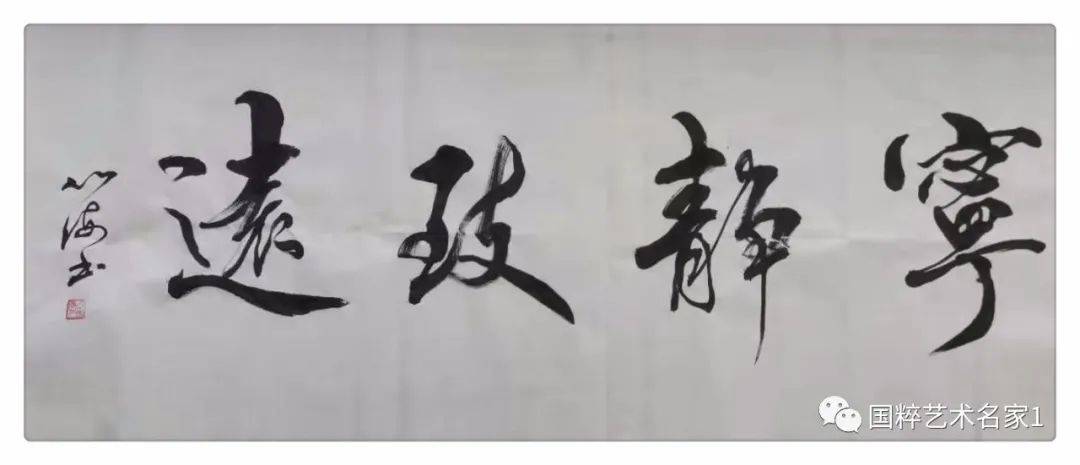 寧靜致遠
心海书
国粹艺术名家1